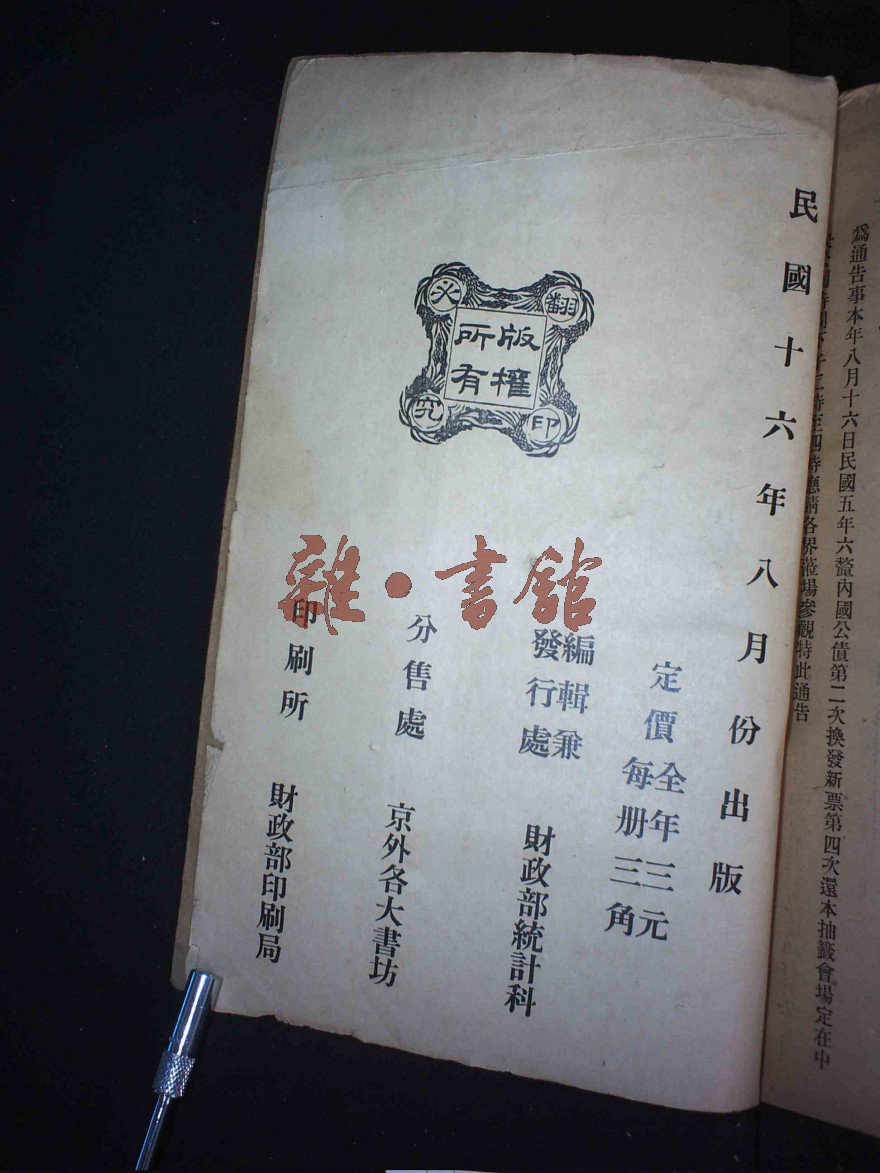 為通告事本年八月十六日民國五年六釐內國公債第二次換發新票第四次還本抽籤會場定在中
時至四時應請各界蒞場參觀特此通告
民國十六年八月份出版
定價
全年三元
每册三角
編輯兼
發行處
財政部統計科
分售處
京外各大書坊
印刷所
財政部印刷局
版權
所有
翻印
必究
雜·書館